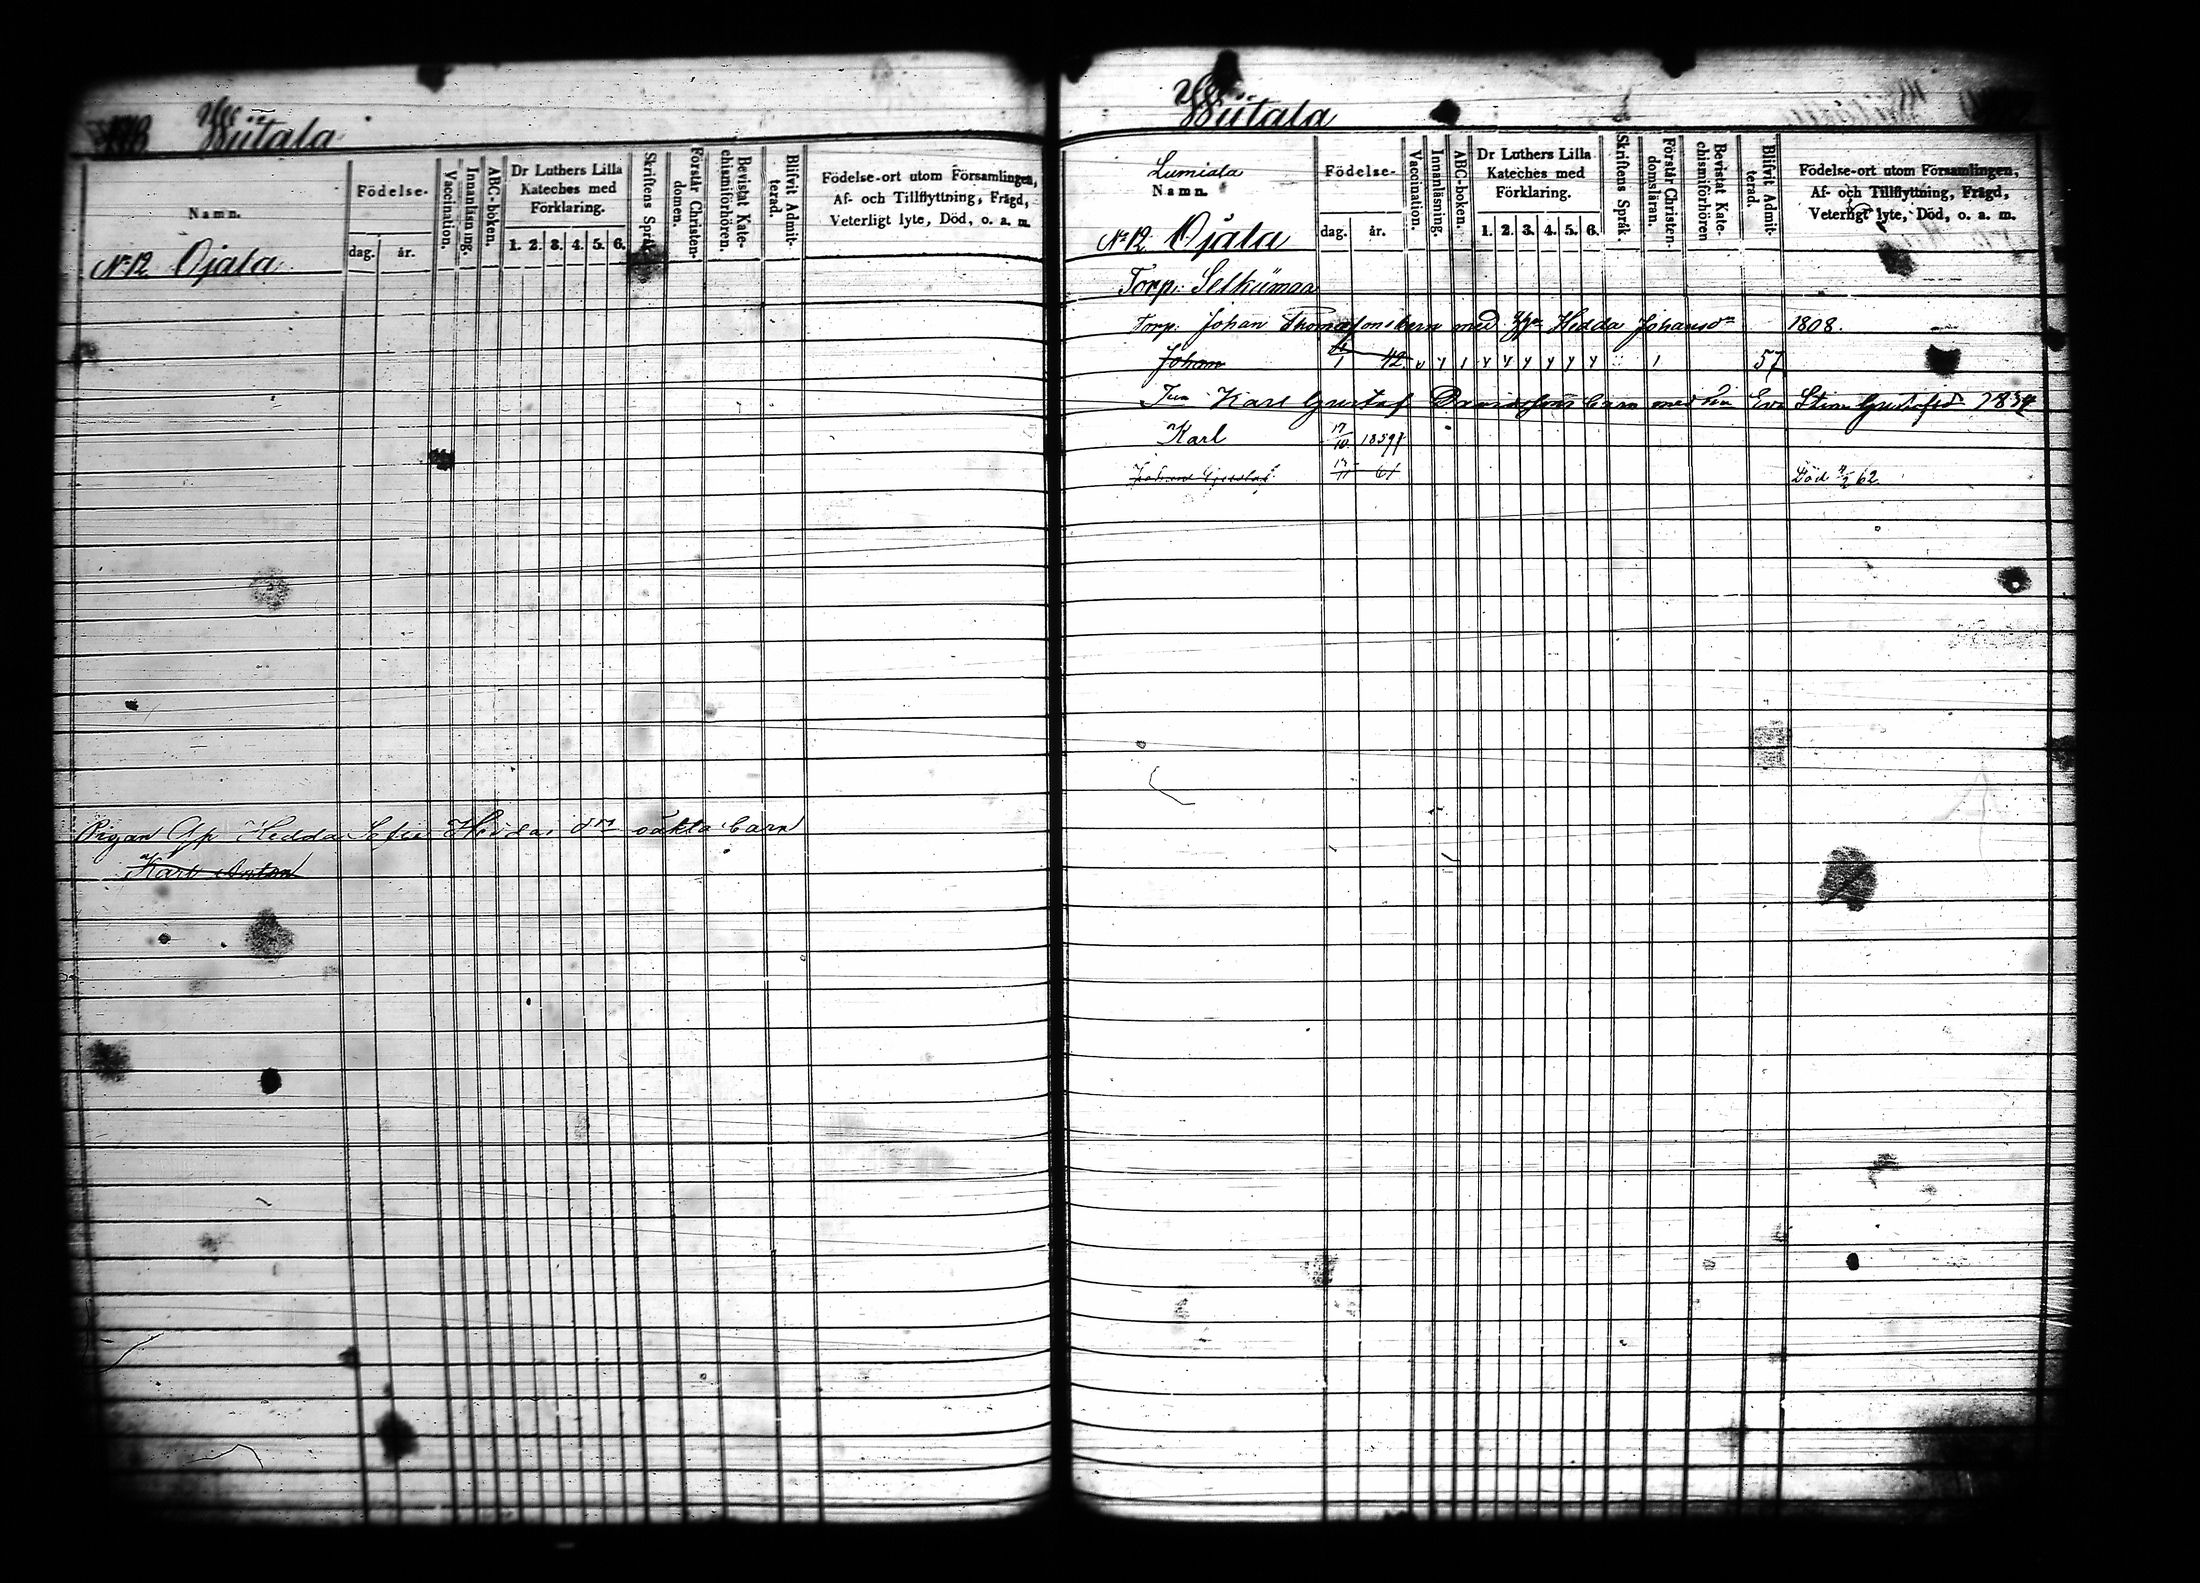 Wiitala
Namn.
Födelse-
dag. år.
Vaccination.
Innanläsning.
ABC-boken.
Dr Luthers Lilla
Kateches med
Förklaring.
1. 2. 3. 4. 5. 6.
Skriftens Språk.
Förstår Christen-
domen.
Bevistat Kate-
chismiförhören.
Blifvit Admit-
terad.
Födelse-ort utom Församlingen,
Af- och Tillflyttning, Frägd,
Veterligt lyte, Död, o. a. m.
No 12 Ojala
Pigan Hedda Sofie oäkta barn
Karl Anton
Wiitala
Lumiala
Namn.
Födelse-
dag. år.
Vaccination.
Innanläsning.
ABC-boken.
Dr Luthers Lilla
Kateches med
Förklaring.
1. 2. 3. 4. 5. 6.
Skriftens Språk.
Förstår Christen-
domsläran.
Bevistat Kate-
chismiförhören
Blifvit Admit-
terad.
Födelse-ort utom Församlingen,
Af- och Tillflyttning, Frägd,
Veterligt lyte, Död, o. a. m.
No 12 Ojala
Torp. Selkiimaa
Torp. Johan Thomassons barn med Hedda Johansdr 1808.
Johan 42 57
Karl Gustaf Davidssons barn med Eva Stina 1834
Karl 17/10 1859
61 Död 62